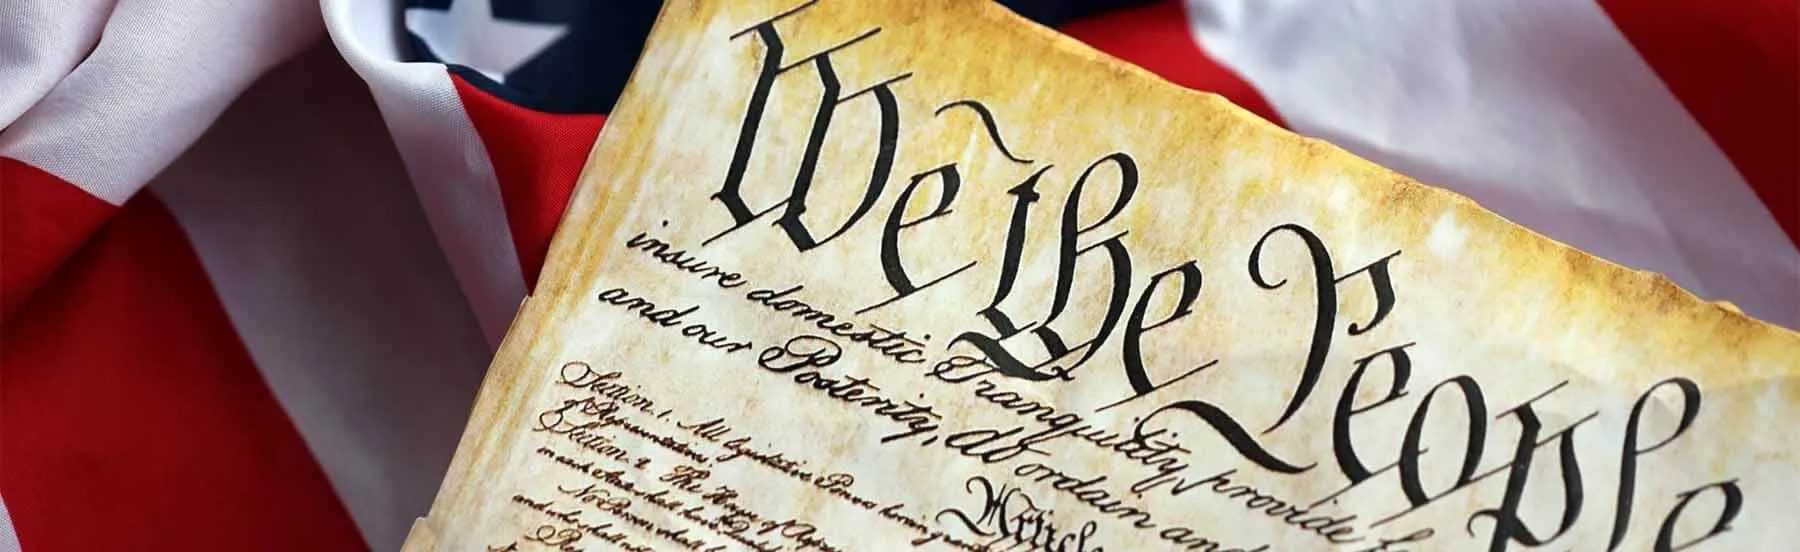 We the People
insure domestic Tranquility, provide
and our Posterity, do ordain and
Article
Section. 1. All legislative Powers herein
of Representatives.
Section. 2. The House of
in each State shall have the
No Person shall
and who shall not